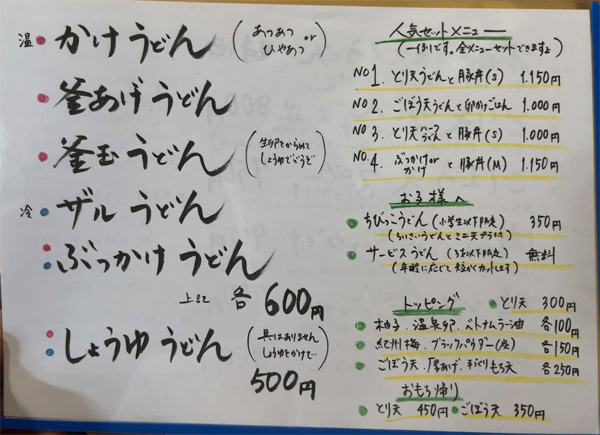 温 かけうどん (あつあつ or ひやあつ)
釜あげうどん
釜玉うどん (生卵をからめて しょうゆでどうぞ)
冷 ザルうどん
ぶっかけうどん
上記 各 600円
しょうゆうどん (具はありません しょうゆをかけて)
500円
人気セットメニュー
(一例です。全メニューセットできますよ)
NO1. とり天うどんと豚丼(S) 1.150円
NO2. ごぼう天うどんと卵かけごはん 1.000円
NO3. とり天うどんと豚丼(S) 1.000円
NO4. ぶっかけorかけと豚丼(M) 1.150円
お子様へ
ちびっこうどん(小学生以下限定) 350円
(ちいさいうどんとミニ天プラ付)
サービスうどん(3才以下限定) 無料
(年齢に応じて短かくカットします)
トッピング
とり天 300円
柚子.温泉卵.ベトナムラー油 各100円
紀州梅.ブラックパウダー(黒) 各150円
ごぼう天.厚あげ.手づくりもち天 各250円
おもち帰り
とり天 450円 ごぼう天 350円